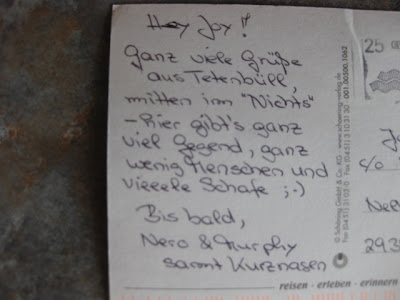 Hey Joy!
Ganz viele Grüße
aus Tetenbüll,
mitten im "Nichts"
- hier gibt's ganz
viel Gegend, ganz
wenig Menschen und
vieeele Schafe ;-)
Bis bald,
Nero & Murphy
samt Kurznasen
© Schöning GmbH & Co. KG · www.schoening-verlag.de
Fax (04 51) 3 10 31 30 001.00300.1062
25
c/o
293
reisen - erleben - erinnern